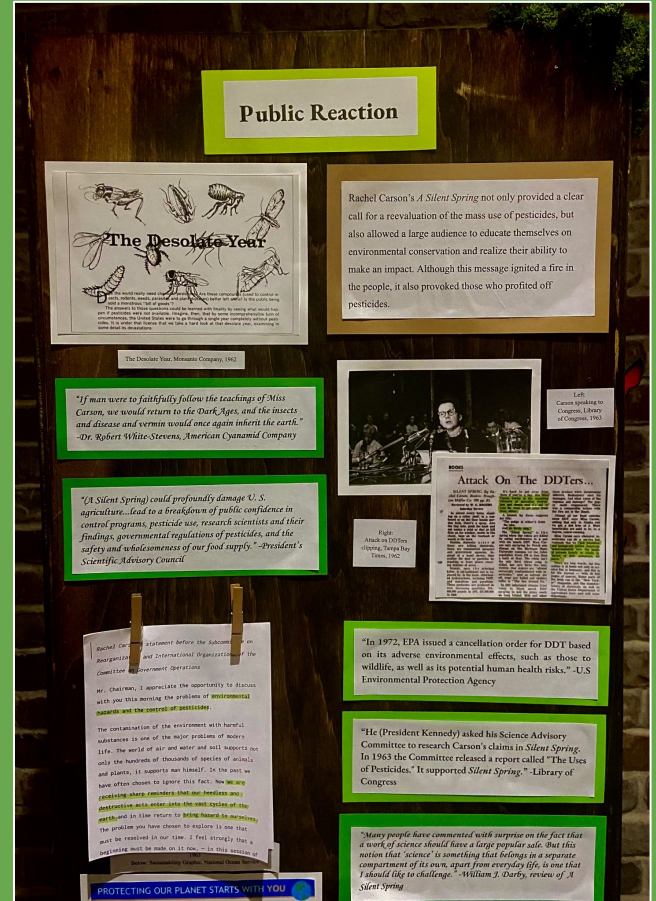 Public Reaction
The Desolate Year
The Desolate Year, Monsanto Company, 1962
Rachel Carson's A Silent Spring not only provided a clear
call for a reevaluation of the mass use of pesticides, but
also allowed a large audience to educate themselves on
environmental conservation and realize their ability to
make an impact. Although this message ignited a fire in
the people, it also provoked those who profited off
pesticides.
"If man were to faithfully follow the teachings of Miss
Carson, we would return to the Dark Ages, and the insects
and disease and vermin would once again inherit the earth."
-Dr. Robert White-Stevens, American Cyanamid Company
Left:
Carson speaking to
Congress, Library
of Congress, 1963
"(A Silent Spring) could profoundly damage U. S.
agriculture...lead to a breakdown of public confidence in
control programs, pesticide use, research scientists and their
findings, governmental regulations of pesticides, and the
safety and wholesomeness of our food supply." -President's
Scientific Advisory Council
BOOKS
Attack On The DDTers...
Right:
Attack on DDTers
clipping, Tampa Bay
Times, 1962
Rachel statement before the on
and International Organizations of the
Committee on Government Operations
Mr. Chairman, I appreciate the opportunity to discuss
with you this morning the problems of environmental
hazards and the control of pesticides.
The contamination of the environment with harmful
substances is one of the major problems of modern
life. The world of air and water and soil supports not
only the hundreds of thousands of species of animals
and plants, it supports man himself. In the past we
have often chosen to ignore this fact. Now we are
receiving sharp reminders that our heedless and
destructive acts enter into the vast cycles of the
earth and in time return to bring hazard to ourselves.
The problem you have chosen to explore is one that
must be resolved in our time. I feel strongly that a
beginning must be made on it now, — in this session of
Below: Sustainability Graphic, National Ocean Service
PROTECTING OUR PLANET STARTS WITH YOU
"In 1972, EPA issued a cancellation order for DDT based
on its adverse environmental effects, such as those to
wildlife, as well as its potential human health risks." -U.S
Environmental Protection Agency
"He (President Kennedy) asked his Science Advisory
Committee to research Carson's claims in Silent Spring.
In 1963 the Committee released a report called "The Uses
of Pesticides." It supported Silent Spring." -Library of
Congress
"Many people have commented with surprise on the fact that
a work of science should have a large popular sale. But this
notion that 'science' is something that belongs in a separate
compartment of its own, apart from everyday life, is one that
I should like to challenge." -William J. Darby, review of A
Silent Spring